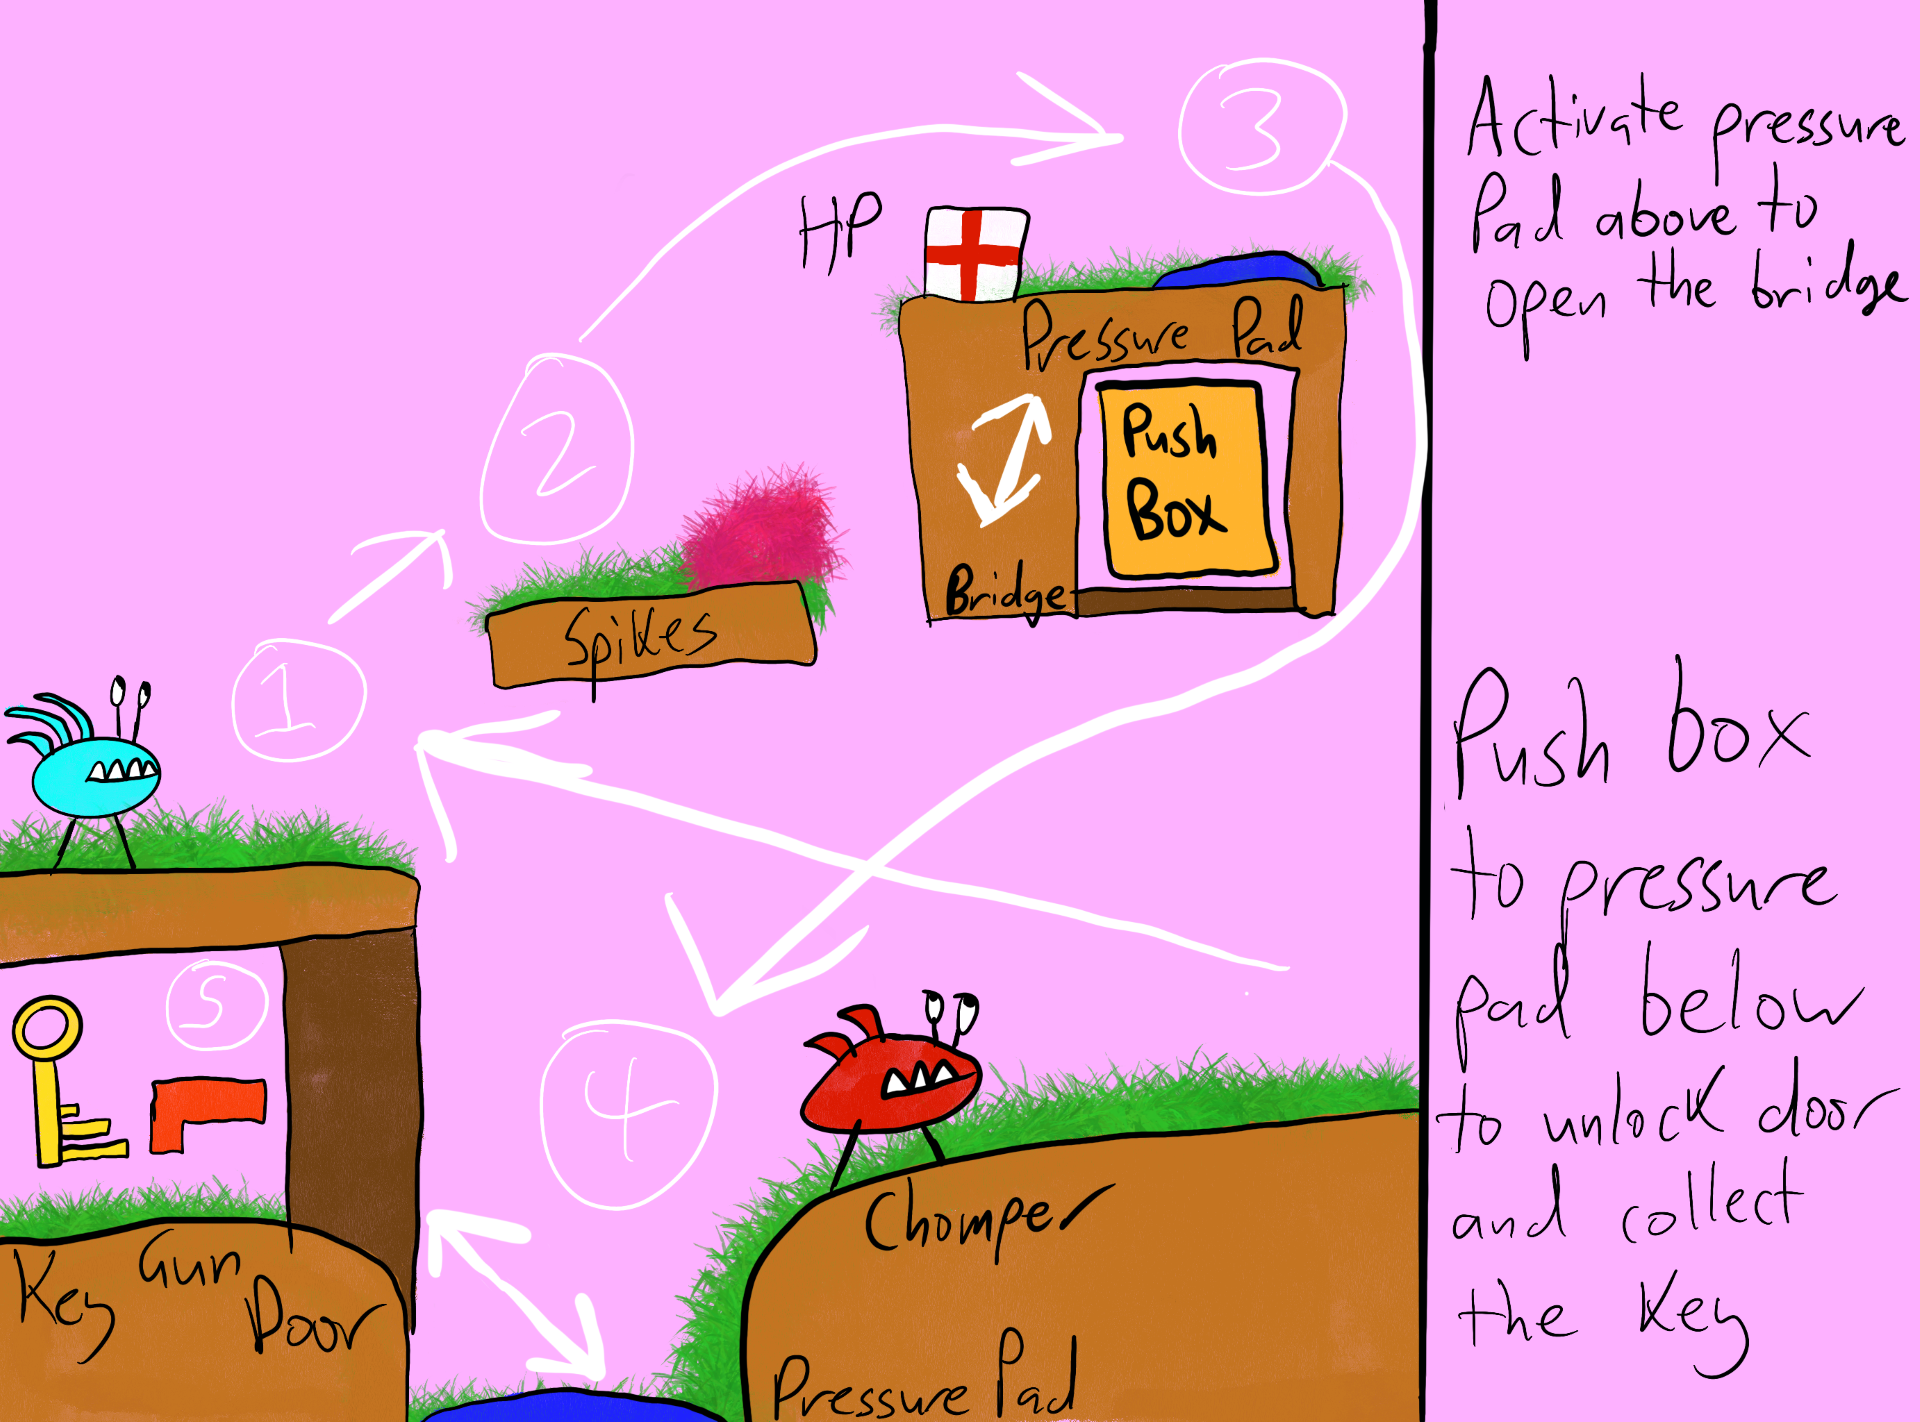 3
HP
Pressure Pad
Push
Box
Bridge
2
Spikes
1
5
4
Key Gun Door
Chomper
Pressure Pad
Activate pressure
Pad above to
open the bridge
Push box
to pressure
pad below
to unlock door
and collect
the Key